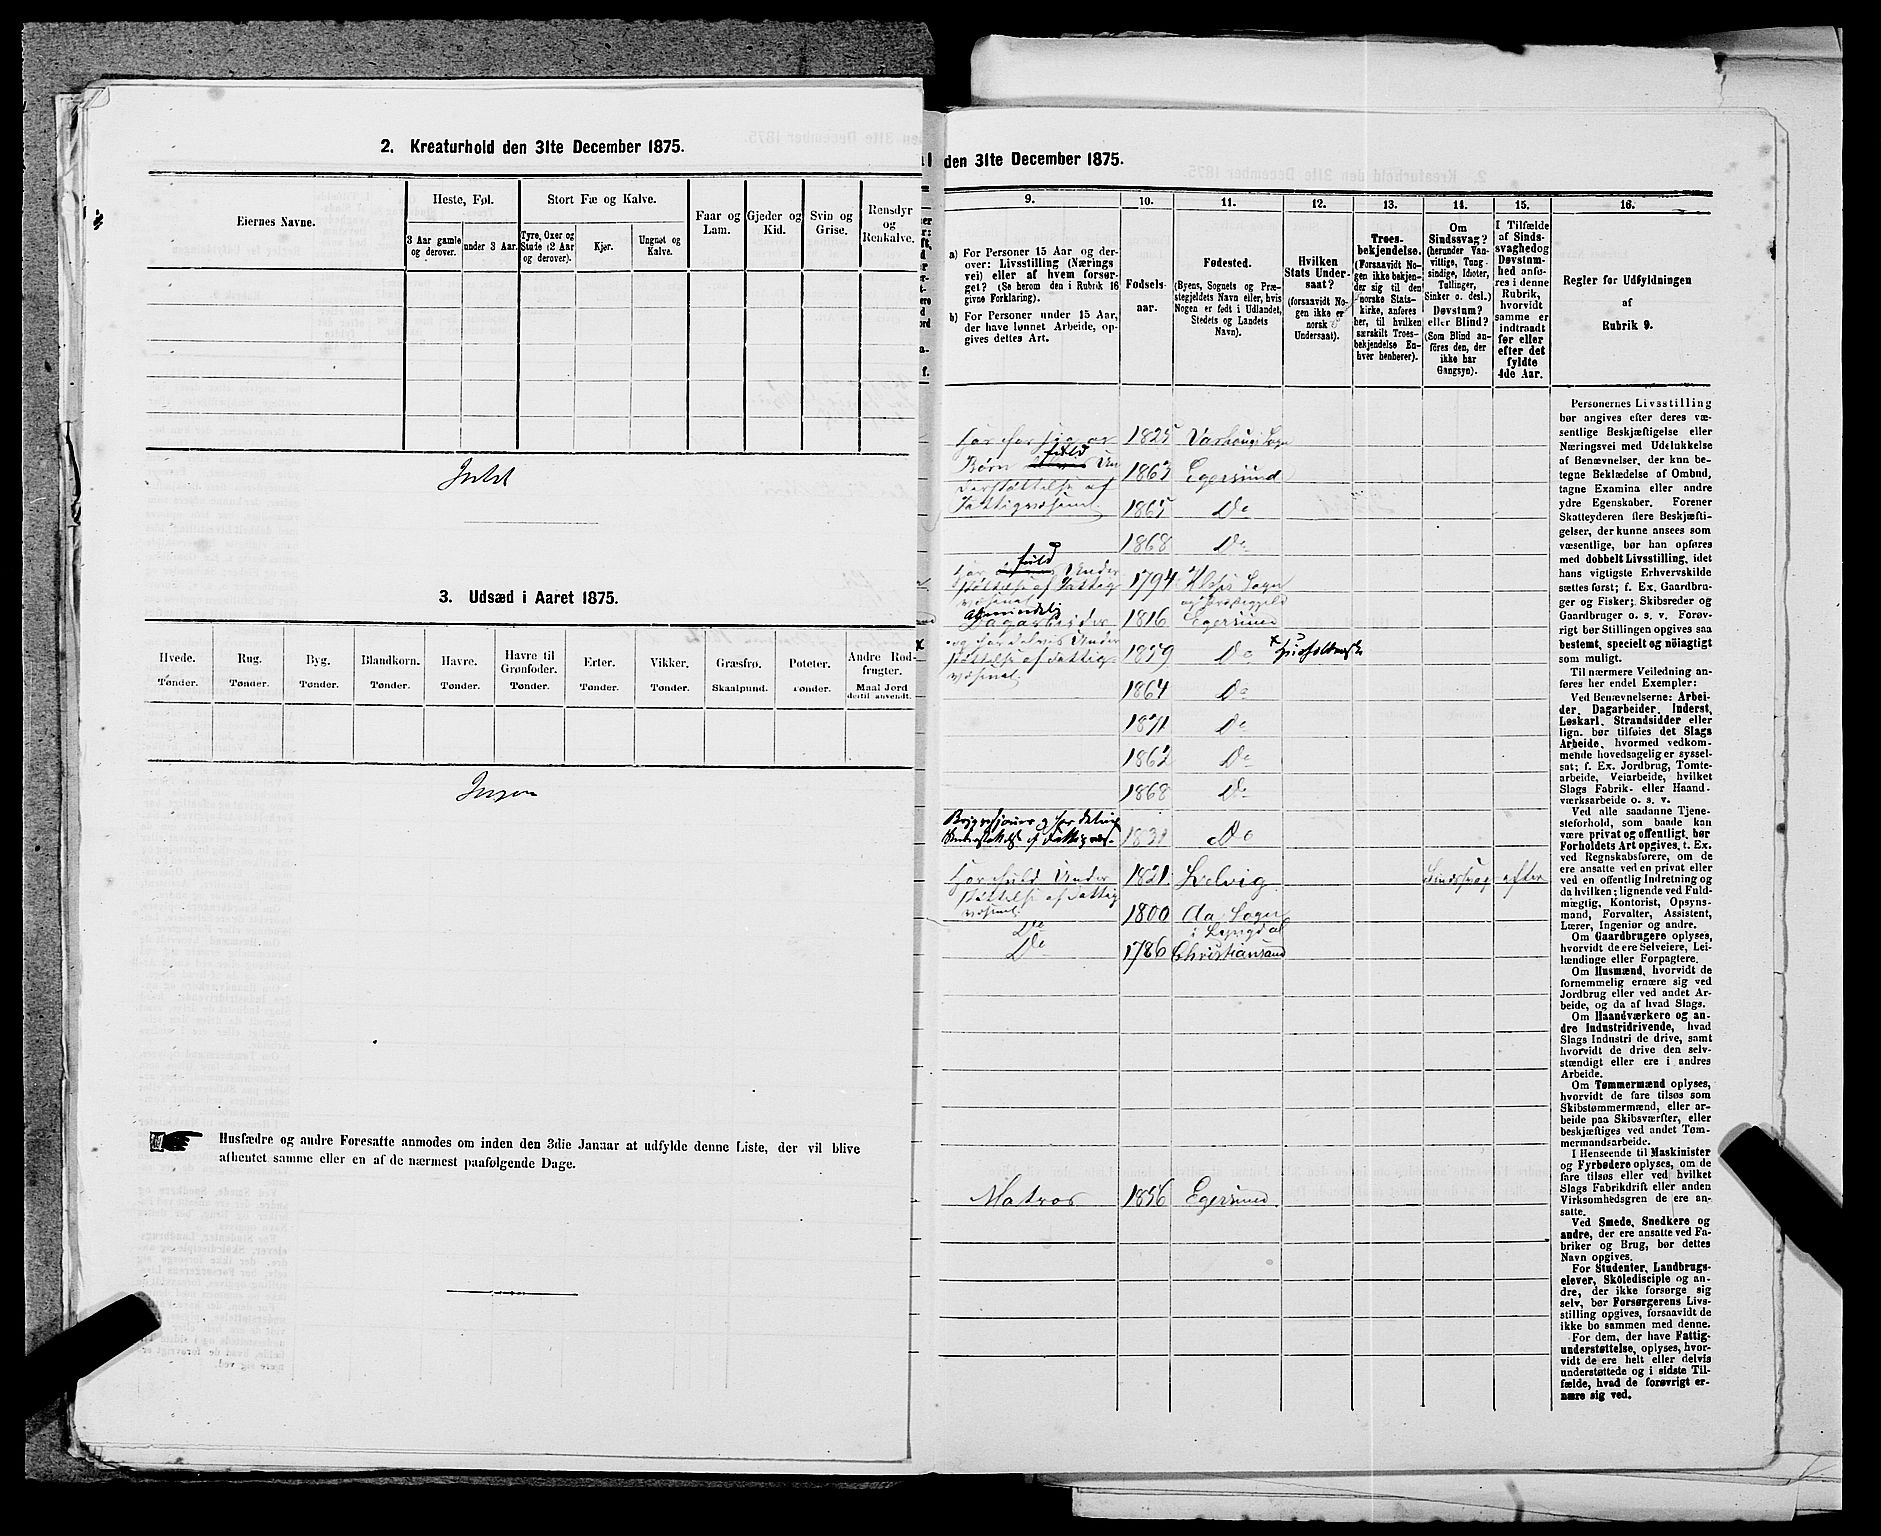 2. Kreaturhold den 31te December 1875.
Eiernes Navne.
Heste, Føl.
3 Aar gamle og derover.
under 3 Aar.
Stort Fæ og Kalve.
Tyre, Oxer og Stude (2 Aar og derover).
Kjør.
Ungnøt og Kalve.
Faar og Lam.
Gjeder og Kid.
Svin og Grise.
Rensdyr og Renkalve.
Intet
3. Udsæd i Aaret 1875.
Hvede. Tønder.
Rug. Tønder.
Byg. Tønder.
Blandkorn. Tønder.
Havre. Tønder.
Havre til Grønfoder. Tønder.
Erter. Tønder.
Vikker. Tønder.
Græsfrø. Skaalpund.
Poteter. Tønder.
Andre Rodfrugter. Maal Jord dertil anvendt.
Ingen
Husfædre og andre Foresatte anmodes om inden den 3die Januar at udfylde denne Liste, der vil blive
afhentet samme eller en af de nærmest paafølgende Dage.
den 31te December 1875.
9.
a) For Personer 15 Aar og der-
over: Livsstilling (Nærings
vei) eller af hvem forsør-
get? (Se herom den i Rubrik 16
givne Forklaring).
b) For Personer under 15 Aar,
der have lønnet Arbeide, op-
gives dettes Art.
10.
Fødsels-
aar.
11.
Fødested.
(Byens, Sognets og Præ-
stegjeldets Navn eller, hvis
Nogen er født i Udlandet,
Stedets og Landets
Navn).
12.
Hvilken
Stats Under-
saat?
(forsaavidt No-
gen ikke er
norsk
Undersaat).
13.
Troes-
bekjendelse.
(Forsaavidt No-
gen ikke bekjen-
der sig til den
norske Stats-
kirke, anføres
her, til hvilken
særskilt Troes-
bekjendelse En-
hver henhører).
14.
Om
Sindssvag?
(herunder Van-
vittige, Tung-
sindige, Idioter,
Tullinger,
Sinker o. desl.)
Døvstum?
eller Blind?
(Som Blind an-
føres den, der
ikke har
Gangsyn).
15.
I Tilfælde
af Sinds-
svaghed og
Døvstum-
hed anfø-
res i denne
Rubrik,
hvorvidt
samme er
indtraadt
før eller
efter det
fyldte
4de Aar.
16.
Regler for Udfyldningen
af
Rubrik 9.
har for sig og 1825 Varhaug Sogn
Børn fuld Un 1863 Egersund
derstøttelse af
Fattigvæsenet 1865 Do
1868 Do
har fuld Under
støttelse af Fattig 1794 Sogn
væsenet
almindelig
Dagarbeider 1816 Egersund
og har delvis Under
støttelse af Fattig- 1859 Do
væsenet.
1864 Do
1871 Do
1862 Do
1868 Do
og har delvis
Understøttelse af Fattigvæs- Do
har fuld Under 1821 Lelvig Sindssvag efter
støttelse af Fattig
væsenet.
Do 1800 Aa Sogn
i Lyngdal
Do 1786 Christiansand
Matros 1856 Egersund
Personernes Livsstilling
bør angives efter deres væ-
sentlige Beskjæftigelse eller
Næringsvei med Udelukkelse
af Benævnelser, der kun be-
tegne Beklædelse af Ombud,
tagne Examina eller andre
ydre Egenskaber. Forener
Skatteyderen flere Beskjæfti-
gelser, der kunne ansees som
væsentlige, bør han opføres
med dobbelt Livsstilling, idet
hans vigtigste Erhvervskilde
sættes først; f. Ex. Gaardbru-
ger og Fisker; Skibsreder og
Gaardbruger o. s. v. Forøv-
rigt bør Stillingen opgives saa
bestemt, specielt og nøiagtigt
som muligt.
Til nærmere Veiledning an-
føres her endel Exempler:
Ved Benævnelserne: Arbei-
der, Dagarbeider, Inderst,
Løskarl, Strandsidder eller
lign. bør tilføies det Slags
Arbeide, hvormed vedkom-
mende hovedsagelig er syssel-
sat; f. Ex. Jordbrug, Tomte-
arbeide, Veiarbeide, hvilket
Slags Fabrik- eller Haand-
værksarbeide o. s. v.
Ved alle saadanne Tjene-
steforhold, som baade kan
være privat og offentligt, bør
Forholdets Art opgives, t. Ex.
ved Regnskabsførere, om de
ere ansatte ved en privat eller
ved en offentlig Indretning og
da hvilken; lignende ved Fuld-
mægtig, Kontorist, Opsyns-
mand, Forvalter, Assistent,
Lærer, Ingeniør og andre.
Om Gaardbrugere oplyses,
hvorvidt de ere Selveiere, Lei-
lændinge eller Forpagtere.
Om Husmænd, hvorvidt de
fornemmelig ernære sig ved
Jordbrug eller ved andet Ar-
beide, og da af hvad Slags.
Om Haandværkere og an-
dre Industridrivende, hvad
Slags Industri de drive, samt
hvorvidt de drive den selv-
stændigt eller ere i andres
Arbeide.
Om Tømmermænd oplyses,
hvorvidt de fare tilsøs som
Skibstømmermænd, eller ar-
beide paa Skibsværfter, eller
beskjæftiges ved andet Tøm-
mermandsarbeide.
I Henseende til Maskinister
og Fyrbødere oplyses, om de
fare tilsøs eller ved hvilket
Slags Fabrikdrift eller anden
Virksomhedsgren de ere an-
satte.
Ved Smede, Snedkere og
andre, der ere ansatte ved Fa-
briker og Brug, bør dettes
Navn opgives.
For Studenter, Landbrugs-
elever, Skoledisciple og an-
dre, der ikke forsørge sig
selv, bør Forsørgerens Livs-
stilling opgives, forsaavidt de
ikke bo sammen med denne.
For dem, der have Fattig-
understøttelse, oplyses, hvor-
vidt de ere helt eller delvis
understøttede og i sidste Til-
fælde, hvad de forøvrigt er-
nære sig ved.